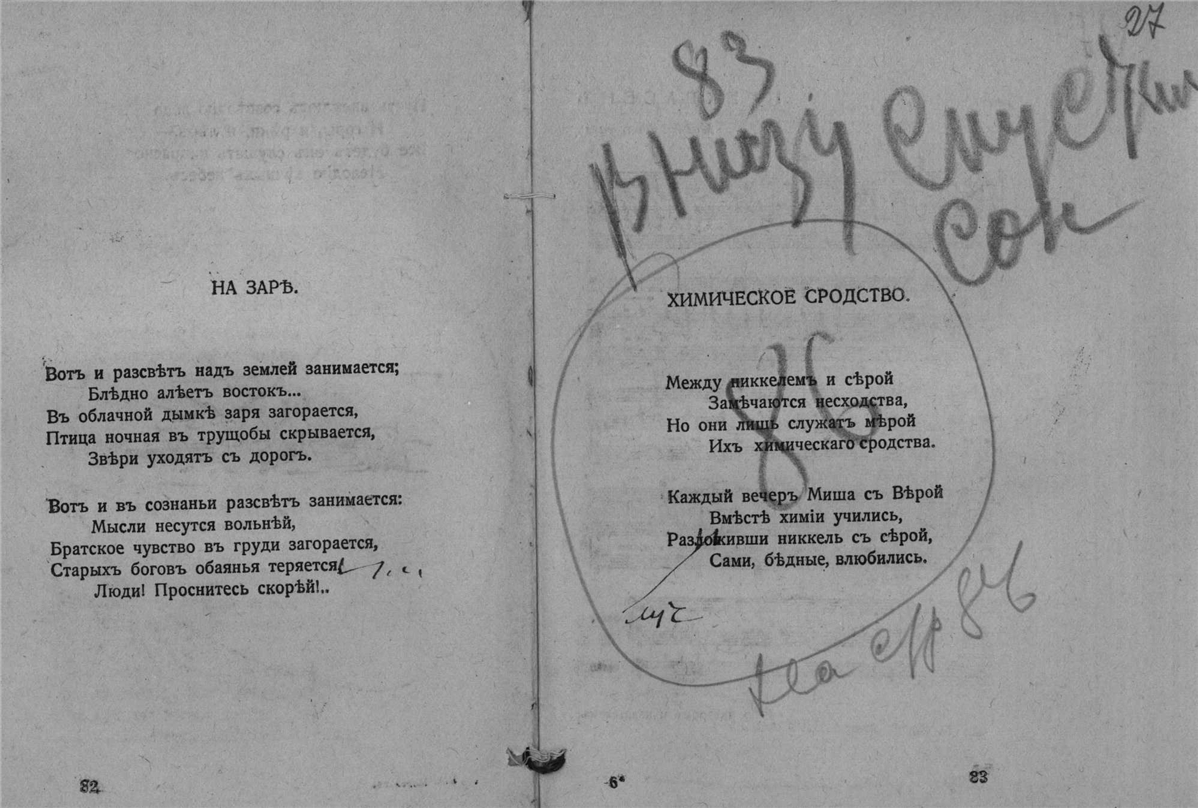 НА ЗАРѢ.
Вотъ и разсвѣтъ надъ землей занимается;
Блѣдно алѣетъ востокъ...
Въ облачной дымкѣ заря загорается,
Птица ночная въ трущобы скрывается,
Звѣри уходятъ съ дорогъ.
Вотъ и въ сознаньи разсвѣтъ занимается:
Мысли несутся вольнѣй,
Братское чувство въ груди загорается,
Старыхъ боговъ обаянья теряется,
Люди! Проснитесь скорѣй!..
82
27
83
Внизу
Сон
ХИМИЧЕСКОЕ СРОДСТВО.
86
Между никкелемъ и сѣрой
Замѣчаются несходства,
Но они лишь служатъ мѣрой
Ихъ химическаго сродства.
Каждый вечеръ Миша съ Вѣрой
Вмѣстѣ химіи учились,
Разложивши никкель съ сѣрой,
Сами, бѣдные, влюбились.
луч
на стр
6*
83